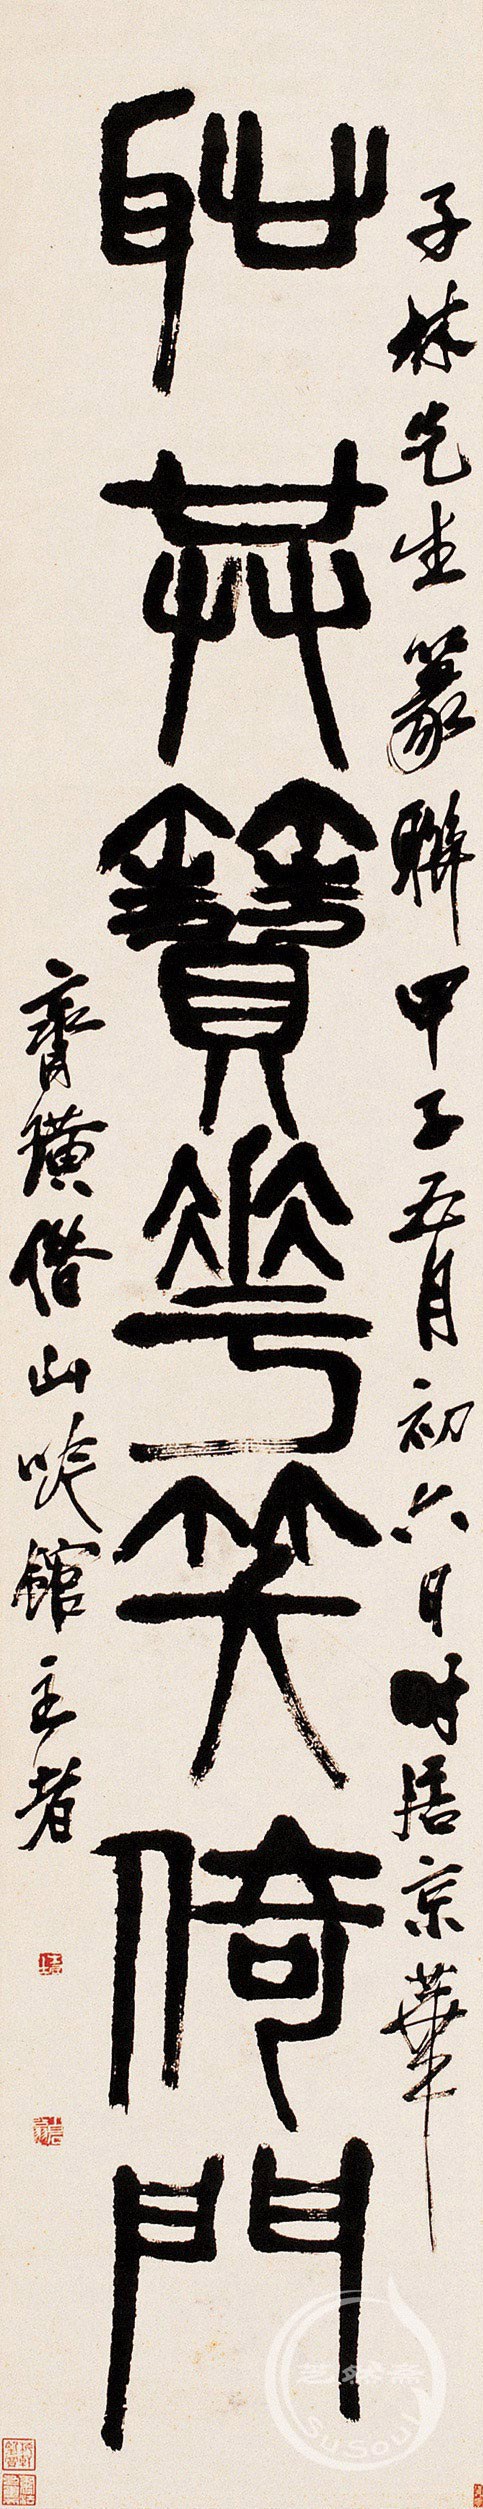 子林先生篆聯甲子五月初六日時居京華
恥共簪花笑倚門
齊璜借山吟館主者
SuSoul